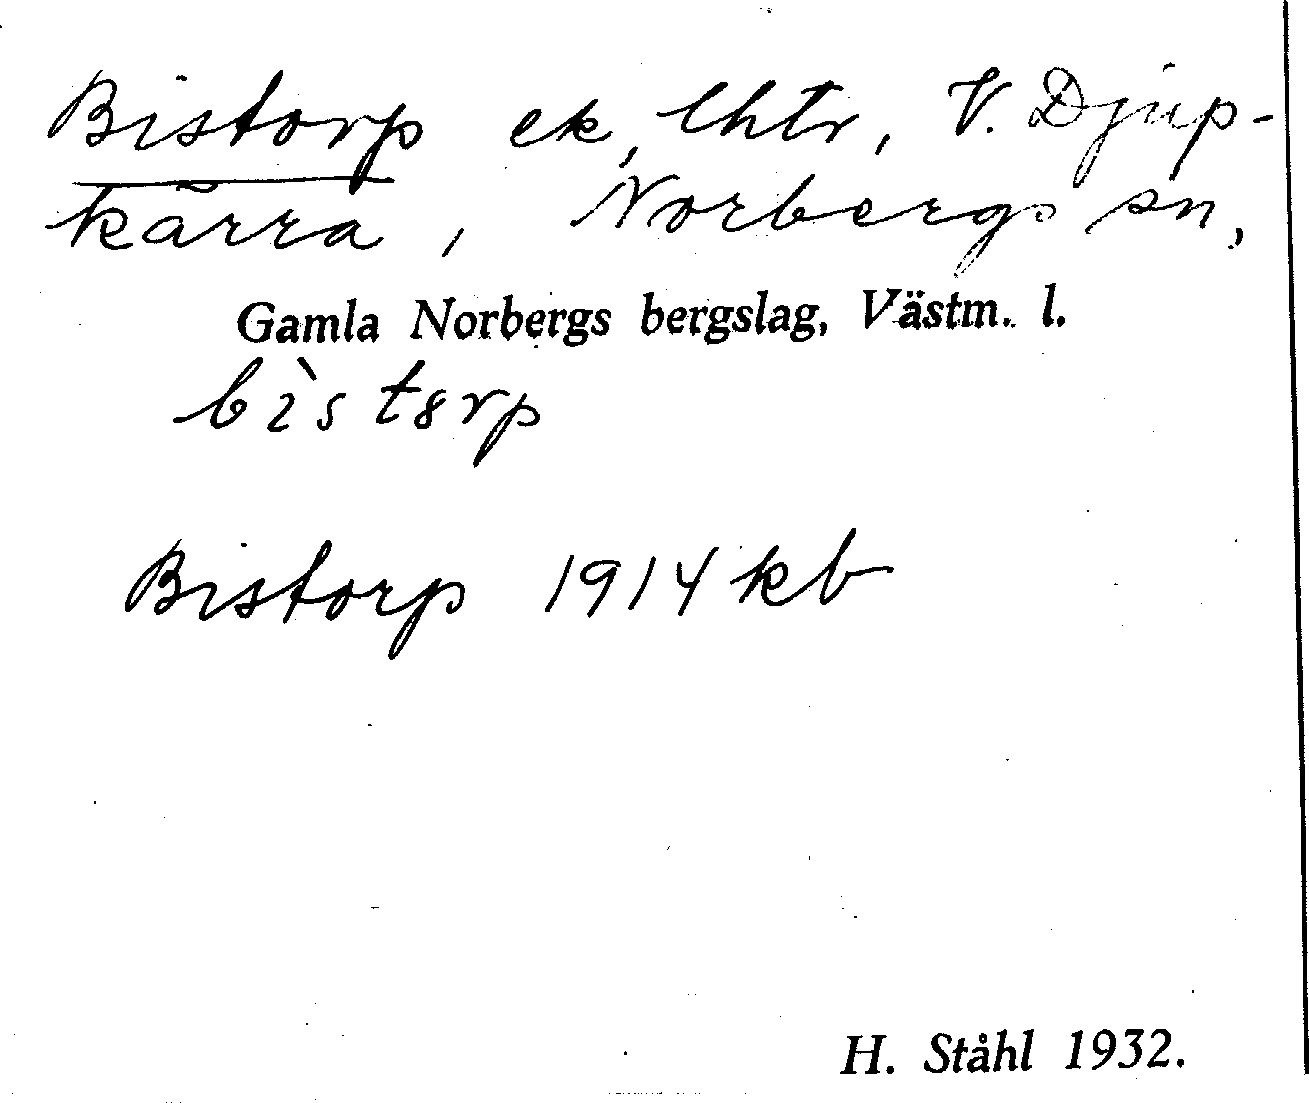 Bistorp ek, lhtr, V. Djup-
kärra, Norbergs sn,
Gamla Norbergs bergslag, Västm. l.
bìstorp
Bistorp 1914 kb
H. Ståhl 1932.